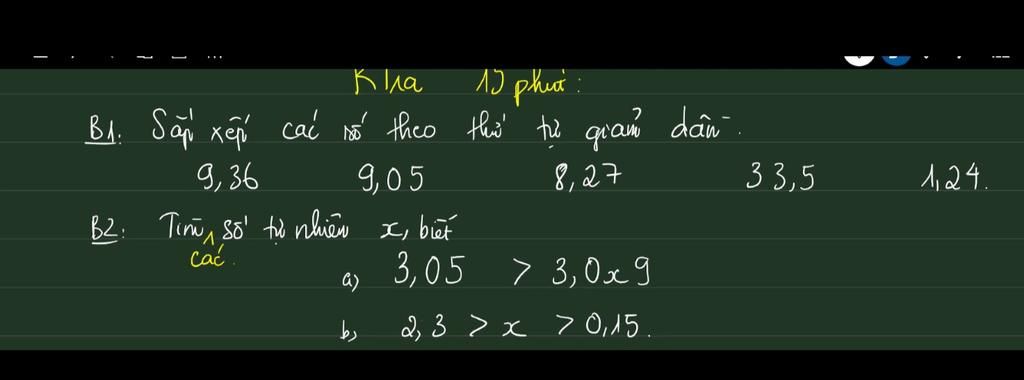 Ktra 15 phút:
B1: Sắp xếp các số theo thứ tự giảm dần.
9,36 9,05 8,27 33,5 1,24.
B2: Tìm các số tự nhiên x, biết
a) 3,05 > 3,0x9
b) 2,3 > x > 0,15.